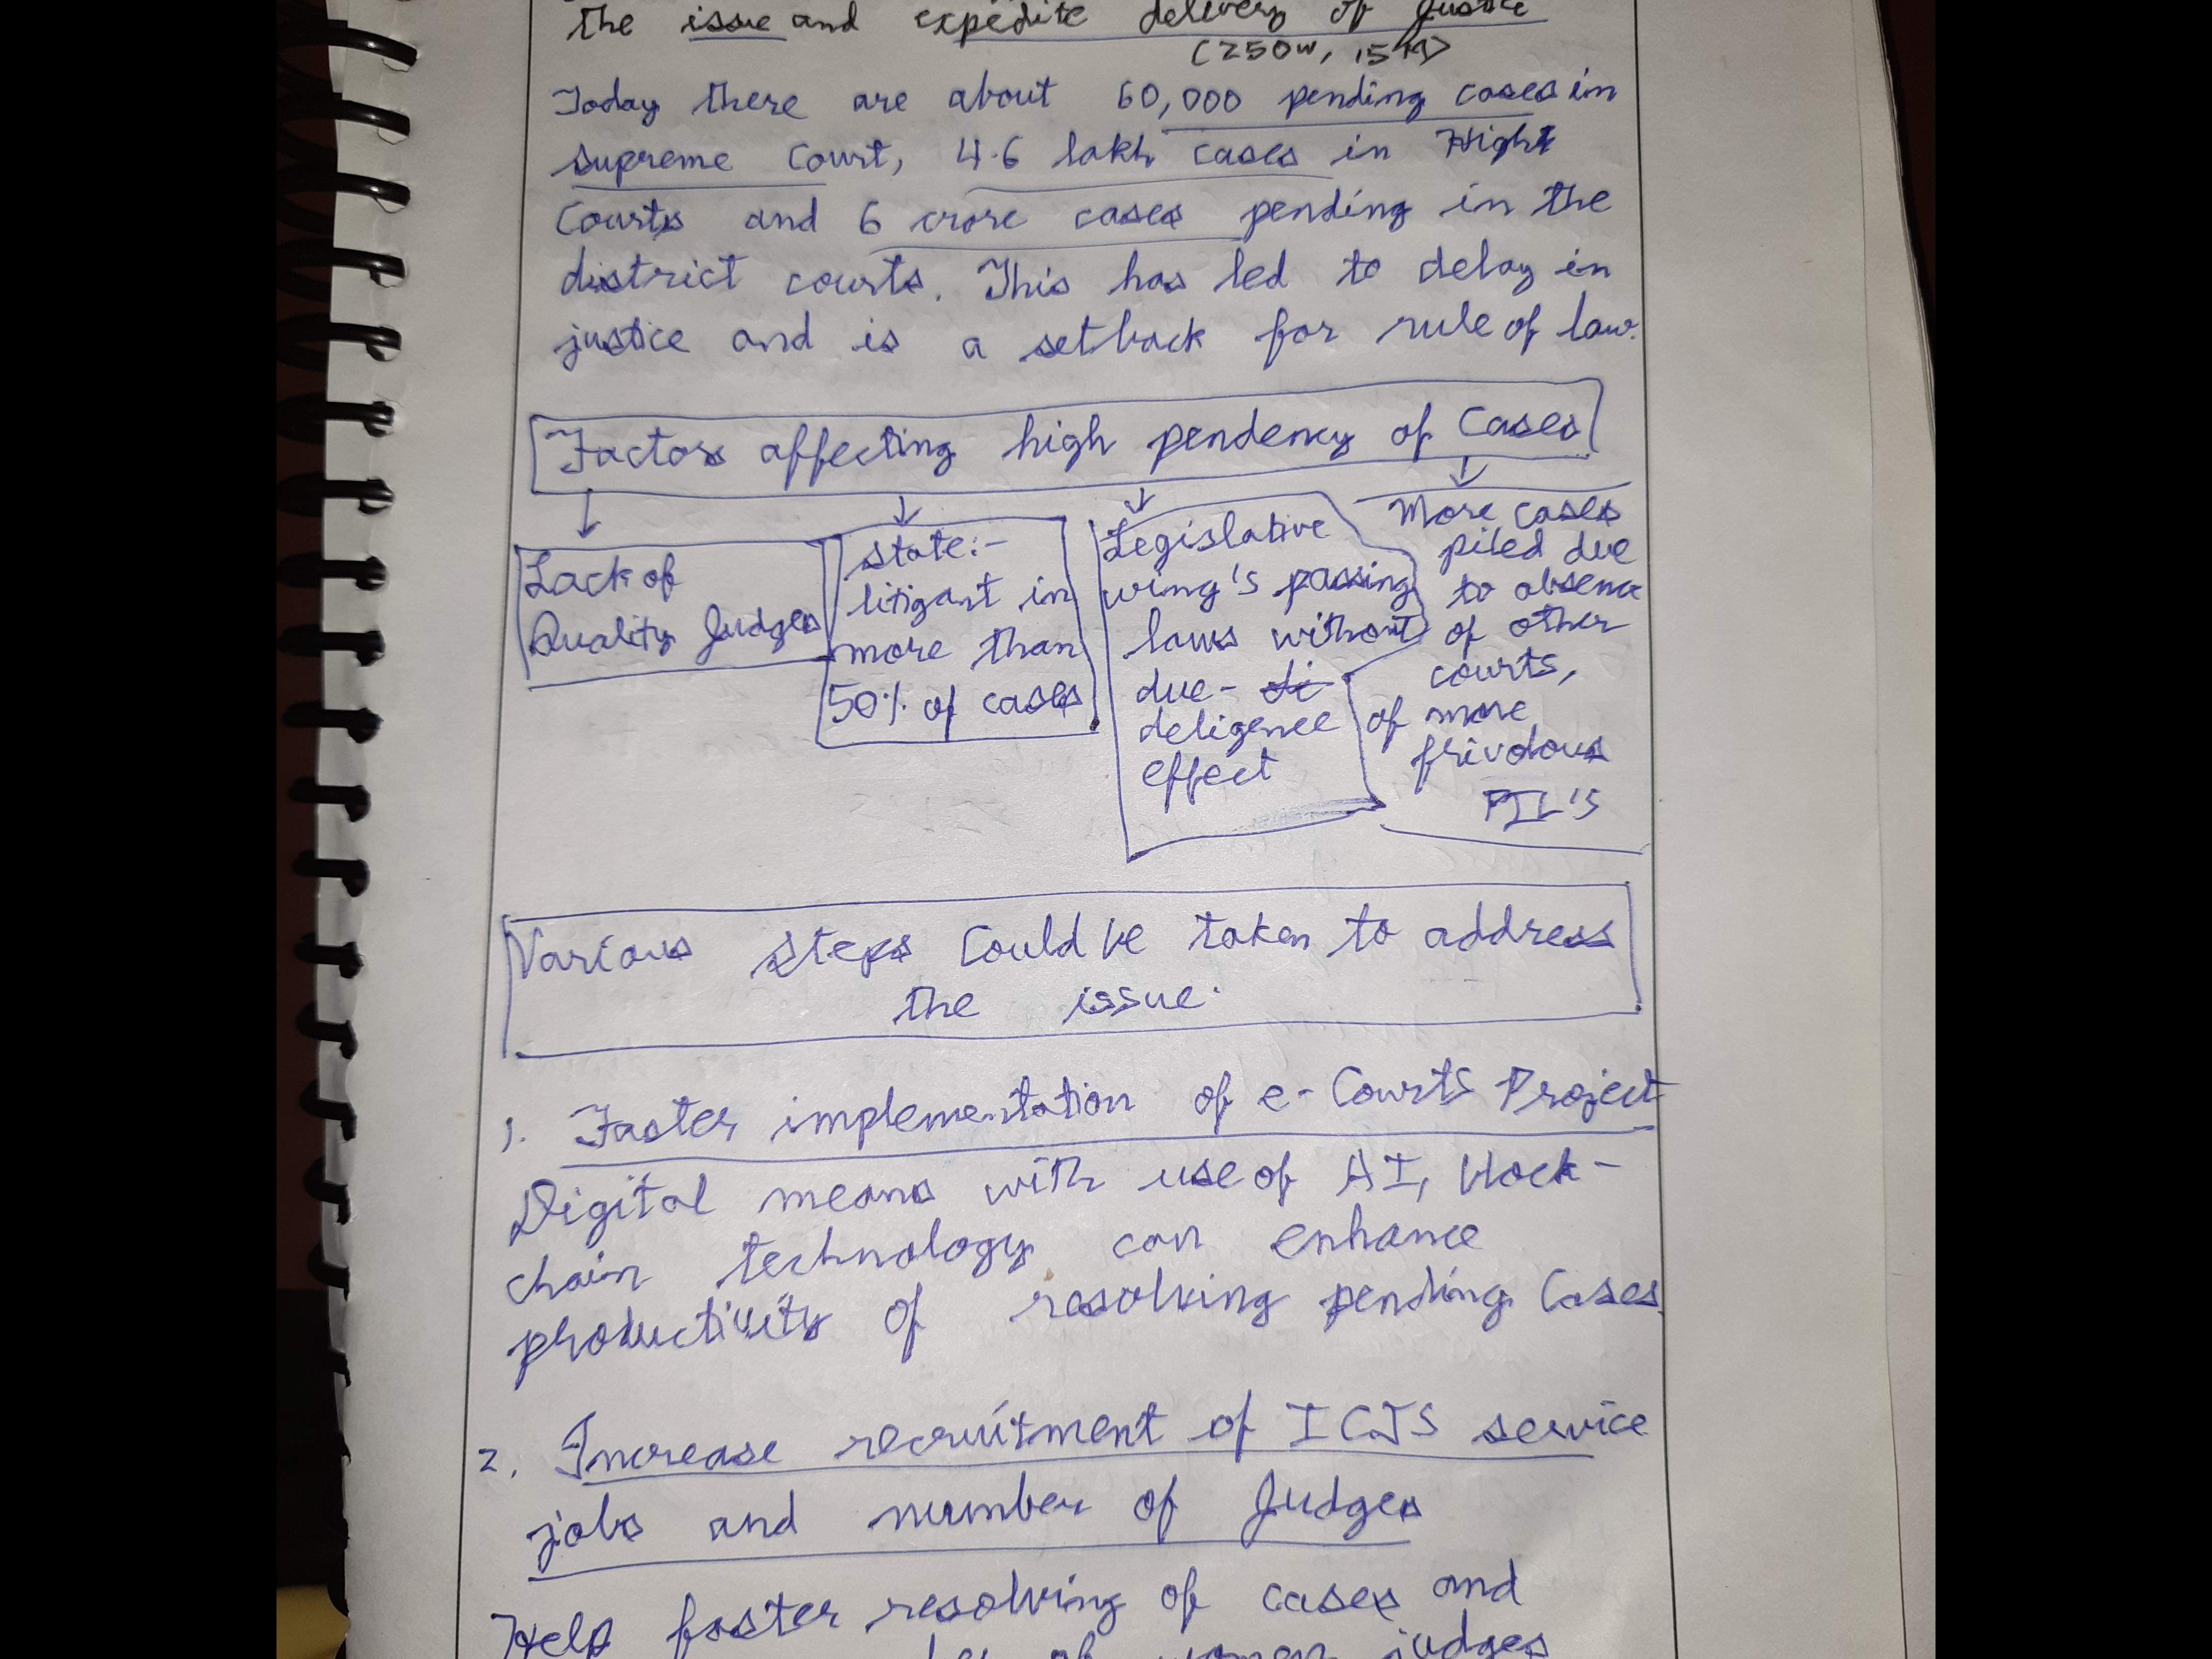 the issue and expedite delivery of Justice
(250w, 15M)
Today there are about 60,000 pending cases in
supreme Court, 4.6 lakh cases in High
Courts and 6 crore cases pending in the
district courts. This has led to delay in
justice and is a setback for rule of law.
Factors affecting high pendency of Cases
Lack of
Quality Judges
state:-
litigant in
more than
50% of cases
Legislative
wing's passing
laws without
due-
deligence
effect
More cases
piled due
to absence
of other
courts,
of more
frivolous
PIL's
Various steps Could be taken to address
the issue.
1. Faster implementation of e-Courts Project
Digital means with use of AI, block-
chain technology can enhance
productivity of resolving pending Cases
2. Increase recruitment of ICJS service
jobs and number of Judges
Help faster resolving of cases and
of women judges